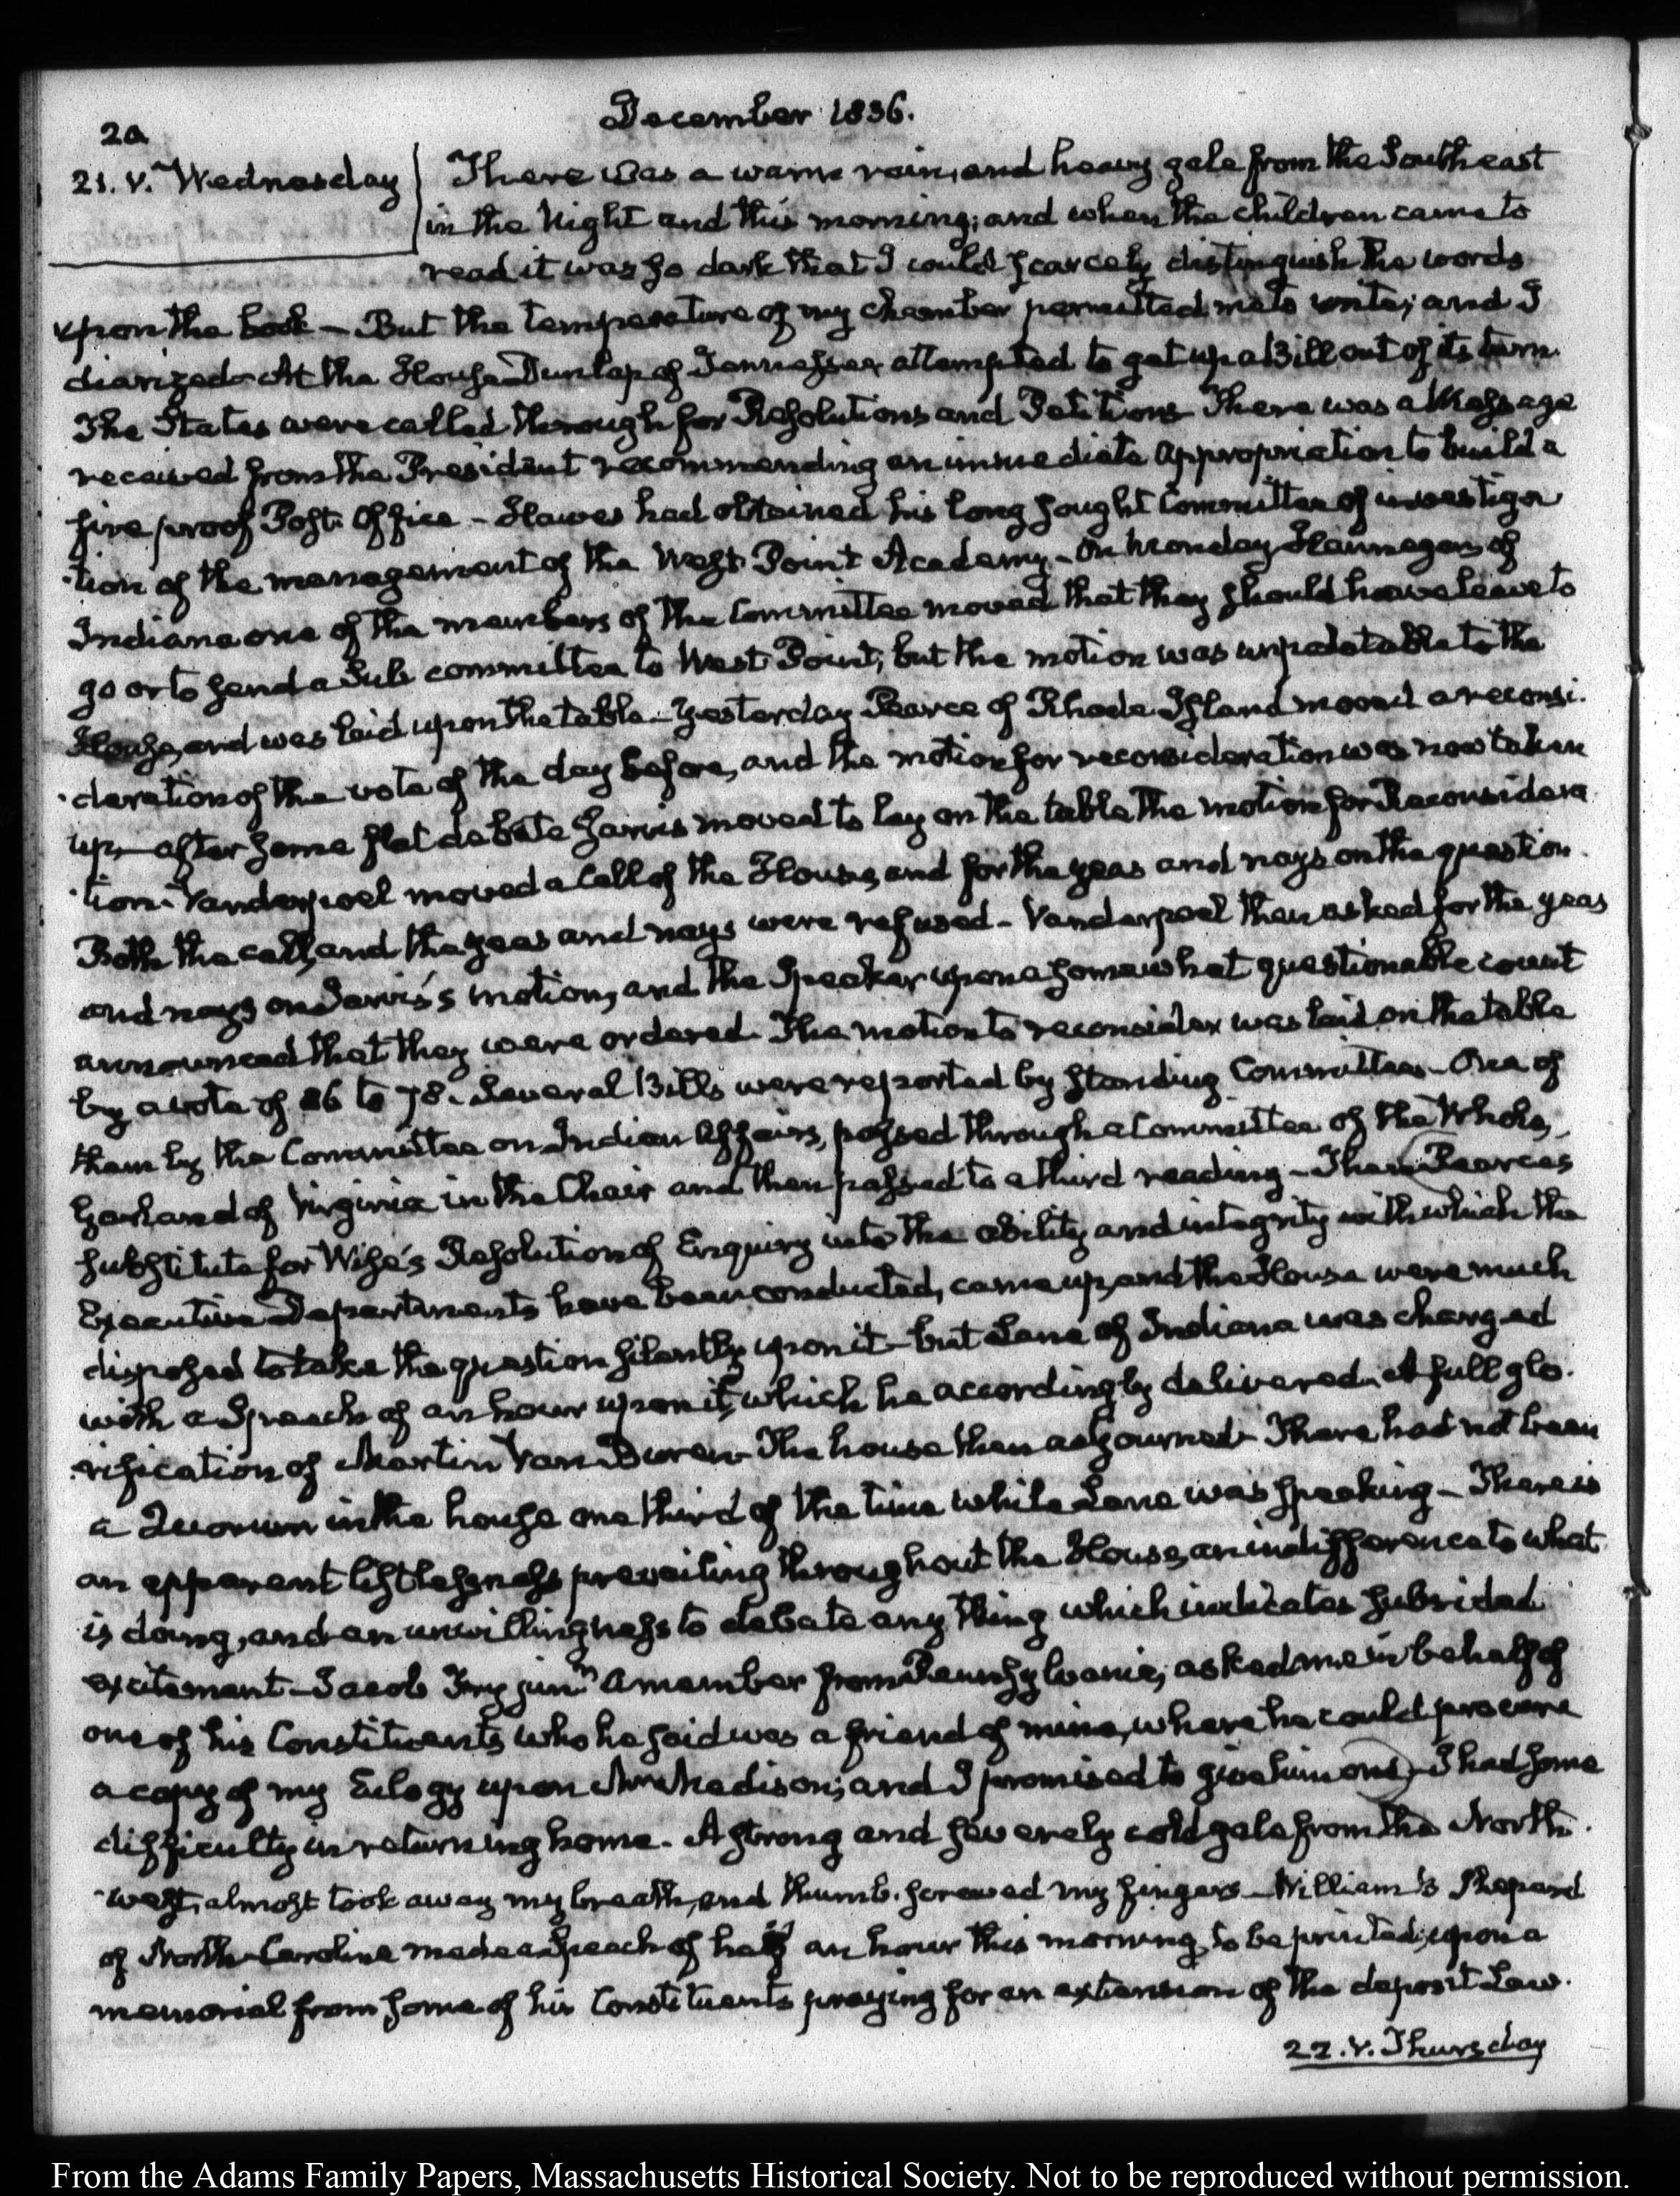 December 1836.
20
21. V. Wednesday
There was a warm rain, and heavy gale from the Southeast
in the Night and this morning; and when the children came to
read it was so dark that I could scarcely distinguish the words
upon the book — But the temperature of my chamber permitted me to write; and I
diarized. At the House Dunlap of Tennessee attempted to get up a Bill out of its turn.
The States were called through for Resolutions and Petitions There was a Message
received from the President recommending an immediate appropriation to build a
fire proof Post Office — Hawes had obtained his long sought Committee of investiga
tion of the management of the West Point Academy — On Monday Hannegan of
Indiana one of the members of the Committee moved that they should have leave to
go or to send a Sub committee to West Point, but the motion was unpalatable to the
House, and was laid upon the table — Yesterday Pearce of Rhode Island moved a reconsi.
deration of the vote of the day before, and the motion for reconsideration was now taken
up — after some flat debate Jarvis moved to lay on the table the motion for Reconsidera
tion. Vanderpoel moved a Call of the House, and for the yeas and nays on the question
Both the call, and the yeas and nays were refused — Vanderpoel then asked for the yeas
and nays on Jarvis's motion, and the Speaker upon a somewhat questionable count
announced that they were ordered. The motion to reconsider was laid on the table
by a vote of 86 to 78. Several Bills were reported by standing Committees — One of
them by the Committee on Indian Affairs, passed through a Committee of the Whole,
Garland of Virginia in the Chair and then passed to a third reading — Then Pearces
substitute for Wise's Resolution of Enquiry into the ability and integrity with which the
Executive Departments have been conducted, came up, and the House were much
disposed to take the question silently upon it — but Lane of Indiana was charged
with a Speech of an hour upon it, which he accordingly delivered. A full glo.
rification of Martin Van Buren — The house then adjourned — There had not been
a Quorum in the house one third of the time while Lane was speaking — There is
an apparent listlessness prevailing throughout the House, an indifference to what
is doing, and an unwillingness to debate any thing which indicates subsided
excitement — Jacob Fry junr. a member from Pennsylvania, asked me in behalf of
one of his Constituents who he said was a friend of mine, where he could procure
a copy of my Eulogy upon Mr. Madison; and I promised to give him one) I had some
difficulty in returning home. A strong and severely cold gale from the North.
west, almost took away my breath, and thumb. screwed my fingers — William B Shepard
of North-Carolina made a Speech of half an hour this morning, to be printed; upon a
memorial from some of his Constituents praying for an extension of the deposit Law.
22. V. Thursday
From the Adams Family Papers, Massachusetts Historical Society. Not to be reproduced without permission.